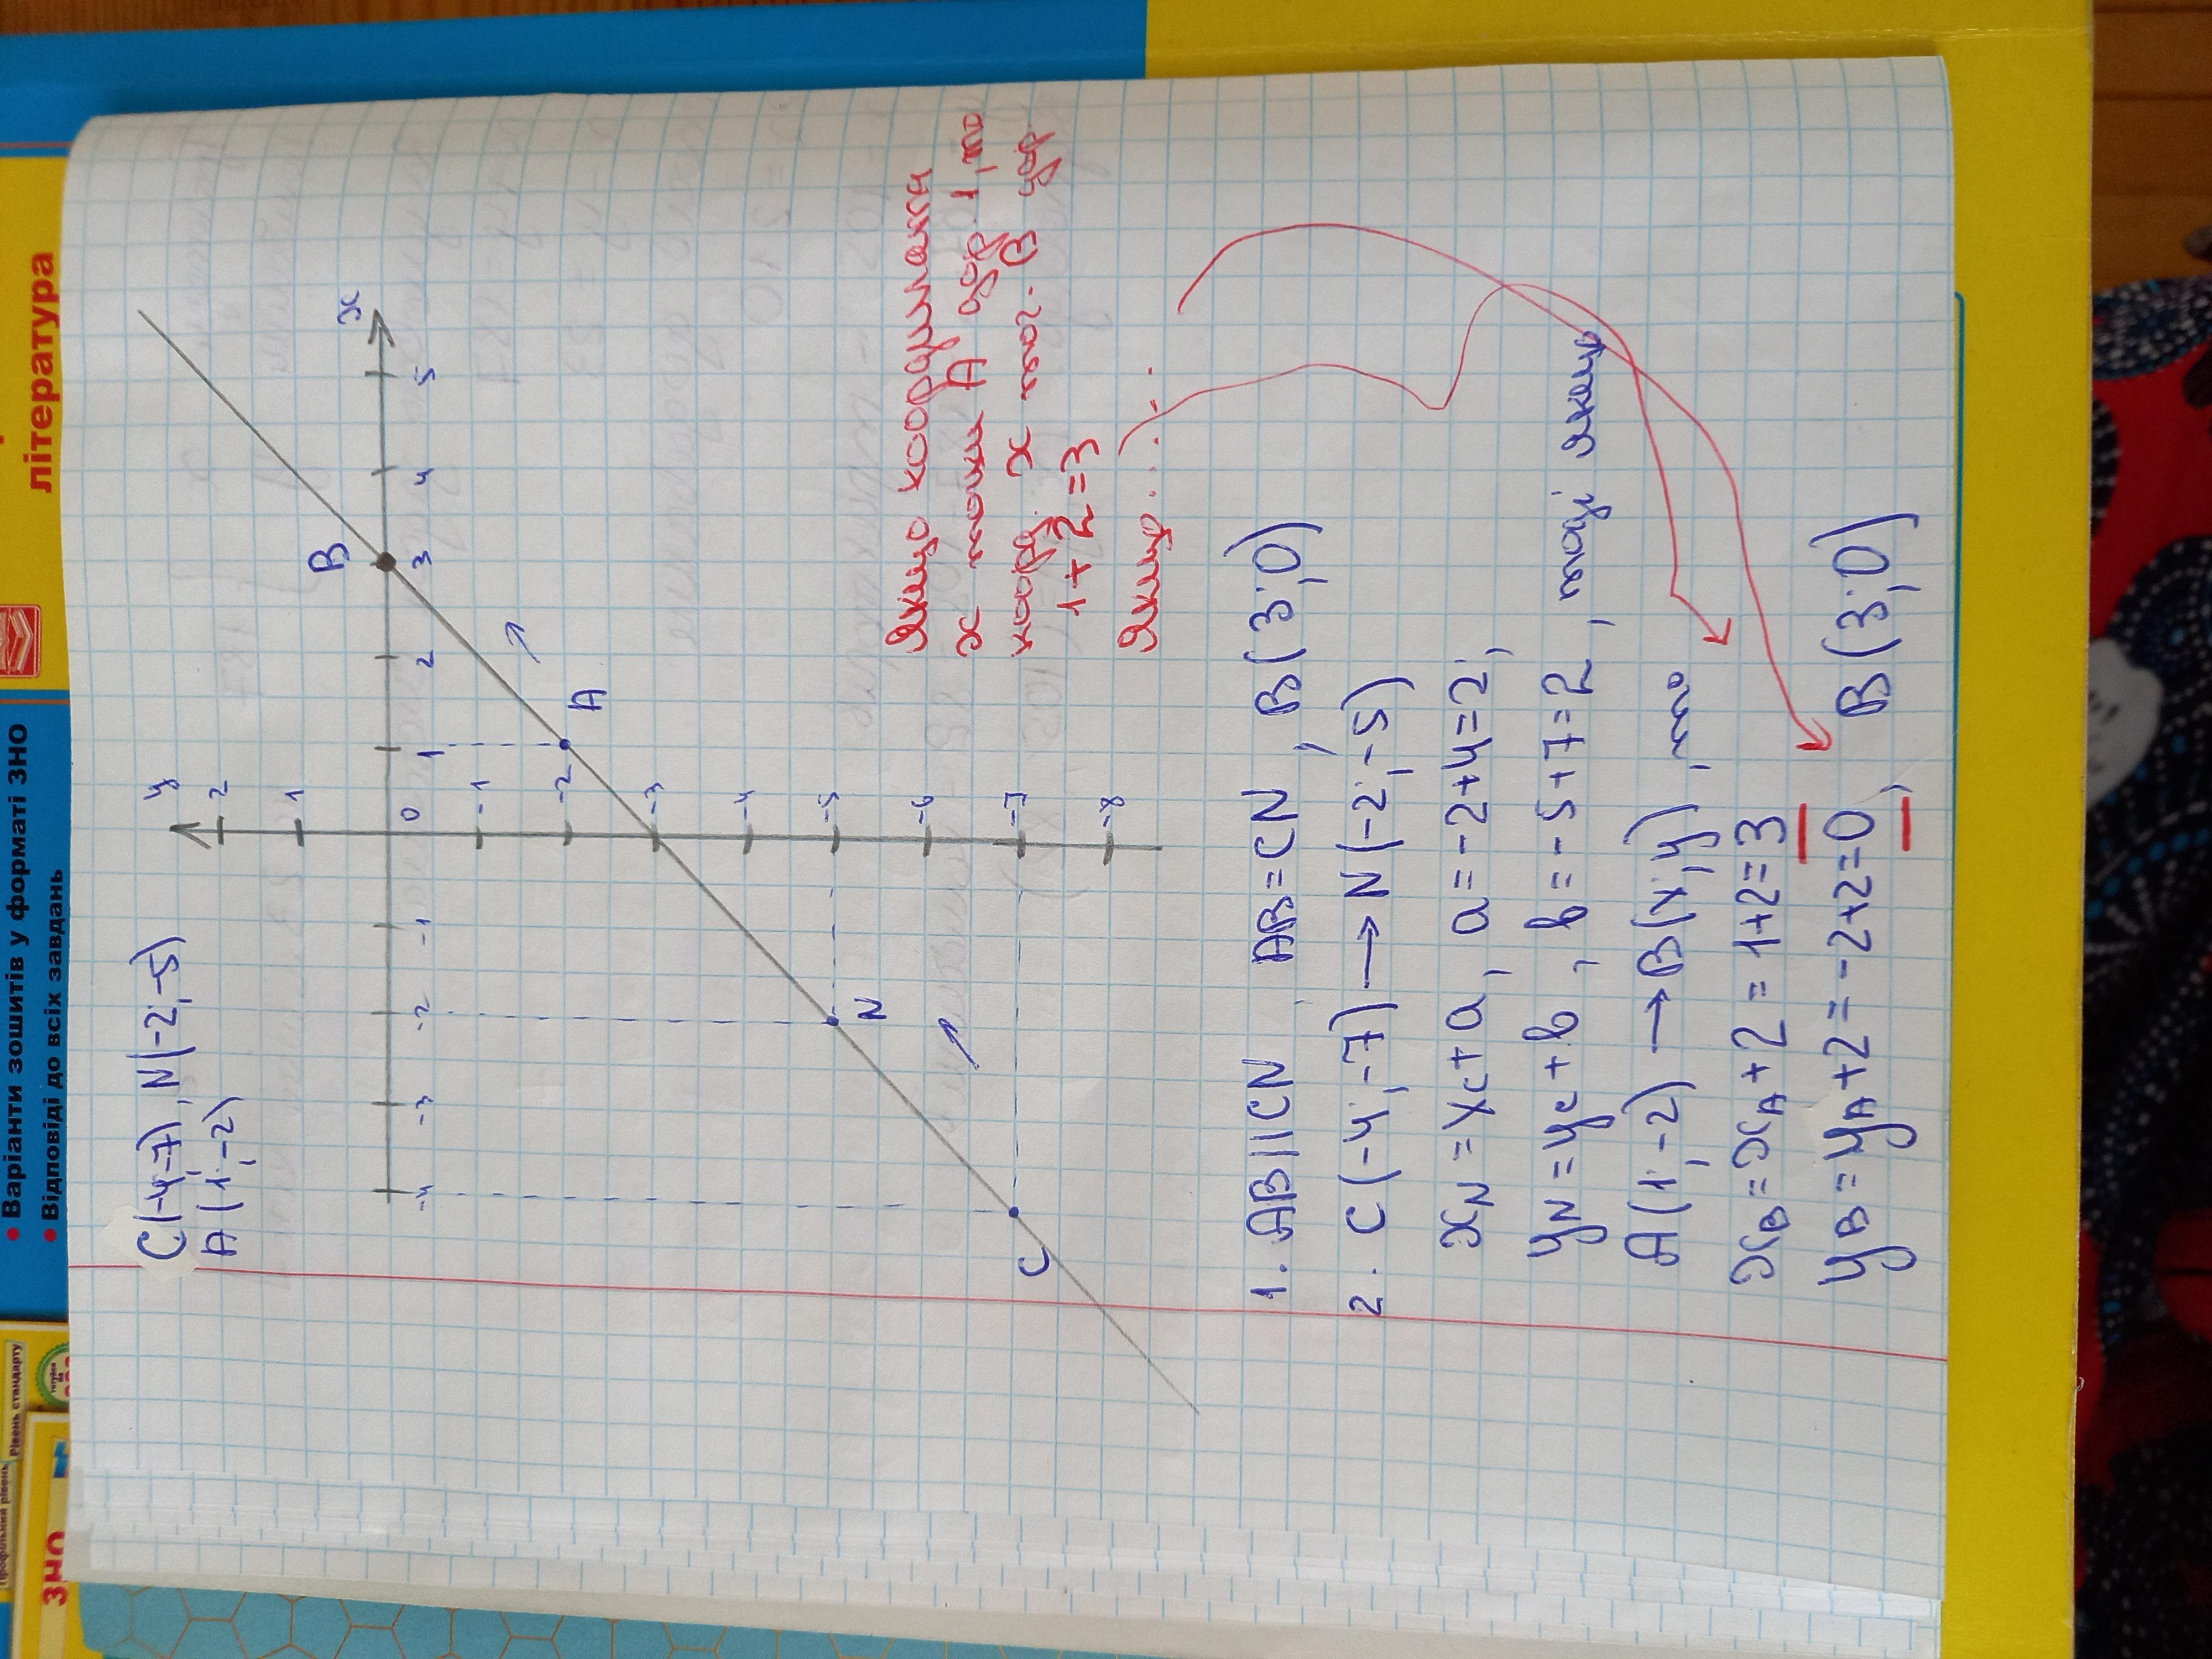 література
• Варіанти зошитів у форматі ЗНО
• Відповіді до всіх завдань
Профільний рівень
Рівень стандарту
ЗНО
C(-4;-7), N(-2;-5)
A(1;-2)
y
x
2
1
0
-1
-2
-3
-4
-5
-6
-7
-8
-4
-3
-2
-1
1
2
3
4
5
B
A
N
C
якщо координата
x точки A дор. 1, то
коорд. x точ. B дор.
1+2=3
якщо.....
1. AB||CN, AB=CN, B(3;0)
2. C(-4;-7)→N(-2;-5)
xN=xC+a, a=-2+4=2;
yN=yC+b, b=-5+7=2, тоді якщо
A(1;-2)→B(x;y), то
xB=xA+2=1+2=3
yB=yA+2=-2+2=0, B(3;0)